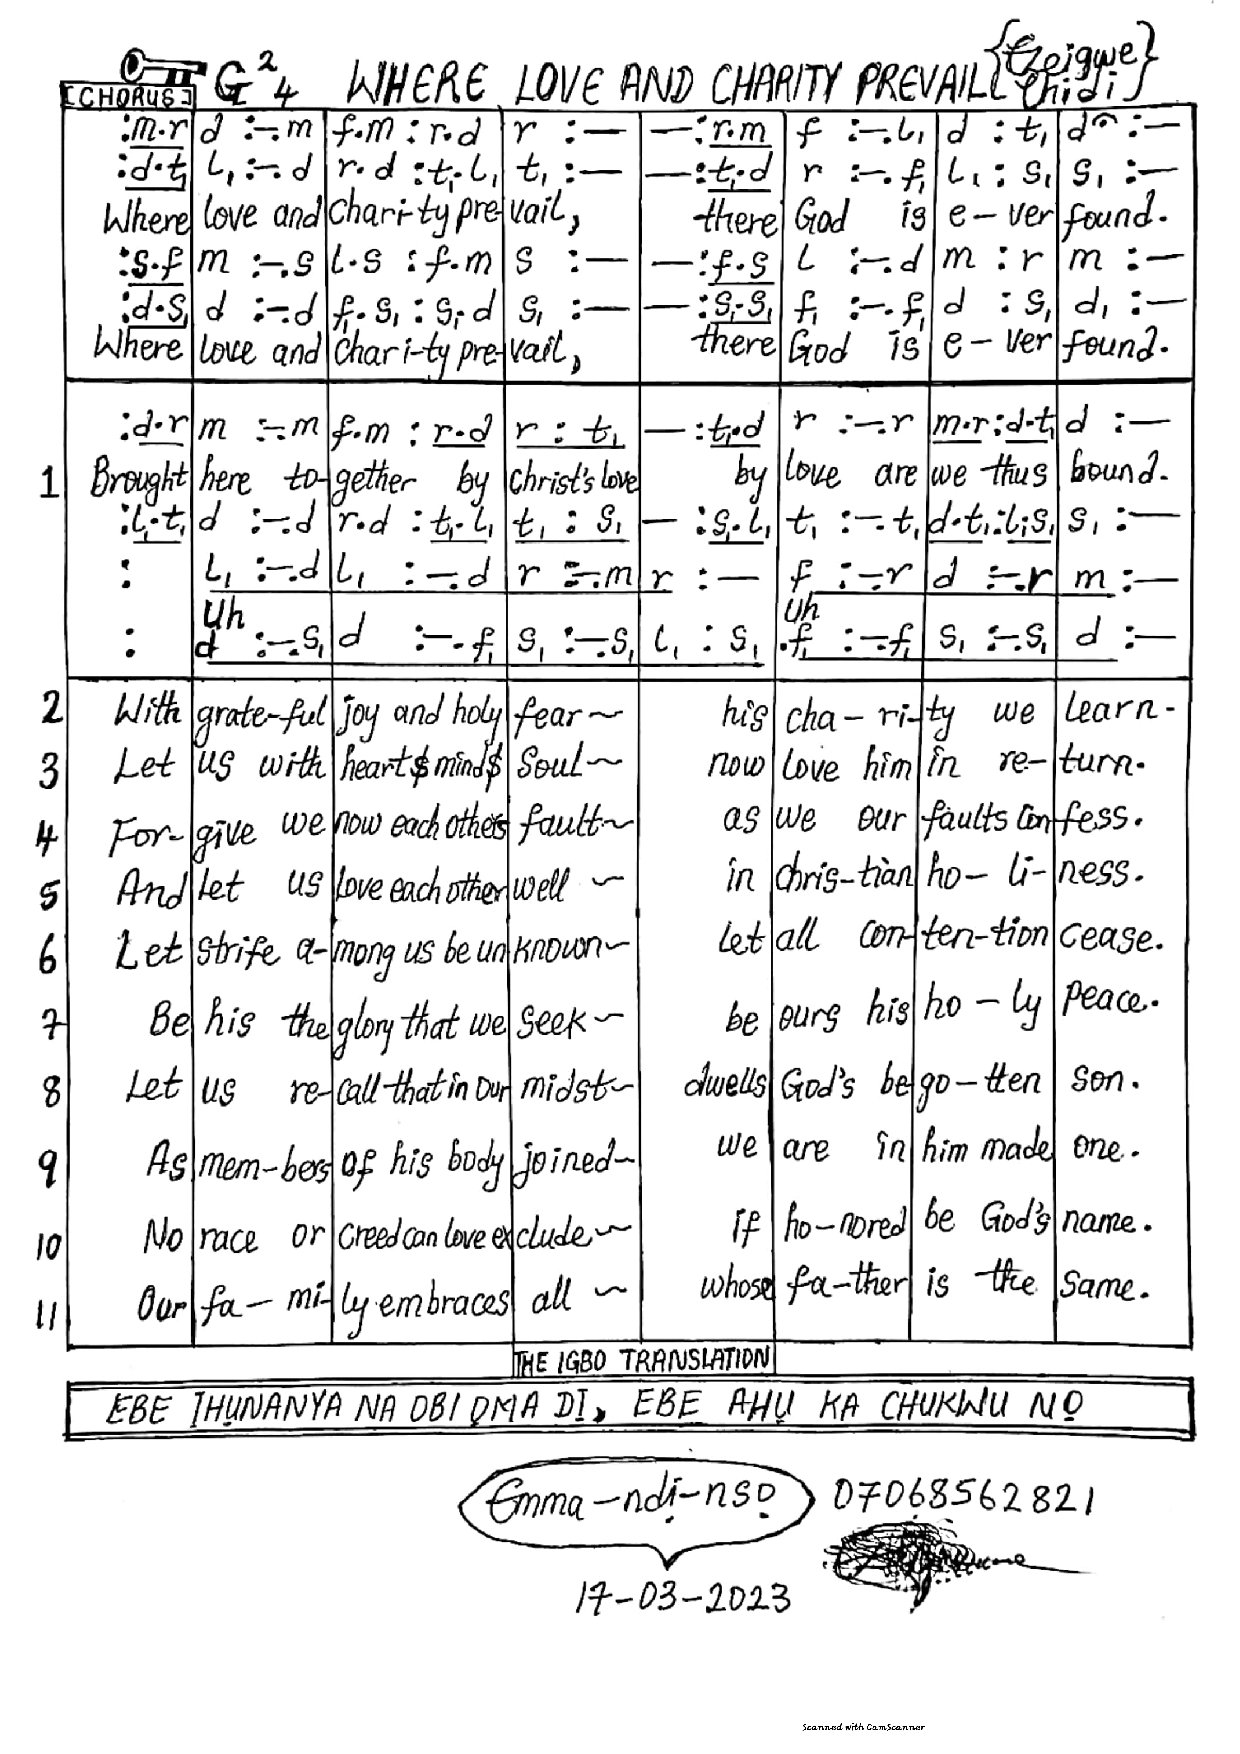 G 2/4 WHERE LOVE AND CHARITY PREVAIL {Ezeigwe Chidi}
[CHORUS]
:m.r d :-.m f.m : r.d r :— —:r.m f :-.l₁ d : t₁ d :—
:d.t₁ l₁ :-.d r.d :t₁.l₁ t₁ :— —:t₁.d r :-.f₁ l₁ : s₁ s₁ :—
Where love and chari-ty pre-vail, there God is e-ver found.
:s.f m :-.s l.s : f.m s :— —:f.s l :-.d m : r m :—
:d.s₁ d :-.d f₁.s₁ : s₁.d s₁ :— —:s₁.s₁ f₁ :-.f₁ d : s₁ d₁ :—
Where love and chari-ty pre-vail, there God is e-ver found.
:d.r m :-.m f.m : r.d r : t₁ —:t₁.d r :-.r m.r:d.t₁ d :—
1 Brought here to-gether by Christ's love by love are we thus bound.
:l₁.t₁ d :-.d r.d : t₁.l₁ t₁ : s₁ — :s₁.l₁ t₁ :-.t₁ d.t₁:l₁.s₁ s₁ :—
: l₁ :-.d l₁ :-.d r :-.m r :— f :-.r d :-.r m :—
Uh Uh
: d :-.s₁ d :-.f₁ s₁ :-.s₁ l₁ : s₁ .f₁ :-.f₁ s₁ :-.s₁ d :—
2 With grate-ful joy and holy fear~ his cha-ri-ty we learn-
3 Let us with heart$ mind$ Soul~ now love him in re-turn.
4 For-give we now each others fault~ as we our faults Confess.
5 And let us love each other well ~ in chris-tian ho-li-ness.
6 Let strife a-mong us be unknown~ Let all con-ten-tion cease.
7 Be his the glory that we seek~ be ours his ho-ly peace.
8 Let us re-call that in our midst~ dwells God's bego-tten son.
9 As mem-bers of his body joined~ we are in him made one.
10 No race or creed can love exclude~ if ho-nored be God's name.
11 Our fa-mi-ly embraces all ~ whose fa-ther is the same.
THE IGBO TRANSLATION
EBE IHỤNANYA NA OBI ỌMA DỊ, EBE AHỤ KA CHUKWU NỌ
Emma-ndị-nsọ 07068562821
17-03-2023
Scanned with CamScanner